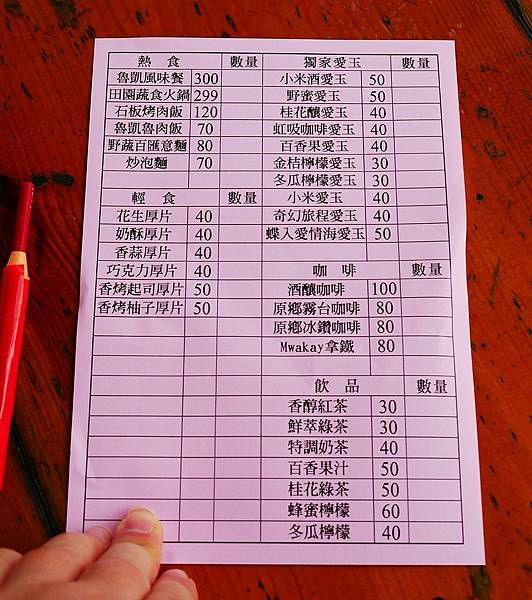 熱食 數量
魯凱風味餐 300
田園蔬食火鍋 299
石板烤肉飯 120
魯凱魯肉飯 70
野蔬百匯意麵 80
炒泡麵 70
輕食 數量
花生厚片 40
奶酥厚片 40
香蒜厚片 40
巧克力厚片 40
香烤起司厚片 50
香烤柚子厚片 50
獨家愛玉 數量
小米酒愛玉 50
野蜜愛玉 50
桂花釀愛玉 40
虹吸咖啡愛玉 40
百香果愛玉 40
金桔檸檬愛玉 30
冬瓜檸檬愛玉 30
小米愛玉 40
奇幻旅程愛玉 40
蝶入愛情海愛玉 50
咖啡 數量
酒釀咖啡 100
原鄉霧台咖啡 80
原鄉冰鑽咖啡 80
Mwakay拿鐵 80
飲品 數量
香醇紅茶 30
鮮萃綠茶 30
特調奶茶 40
百香果汁 50
桂花綠茶 50
蜂蜜檸檬 60
冬瓜檸檬 40